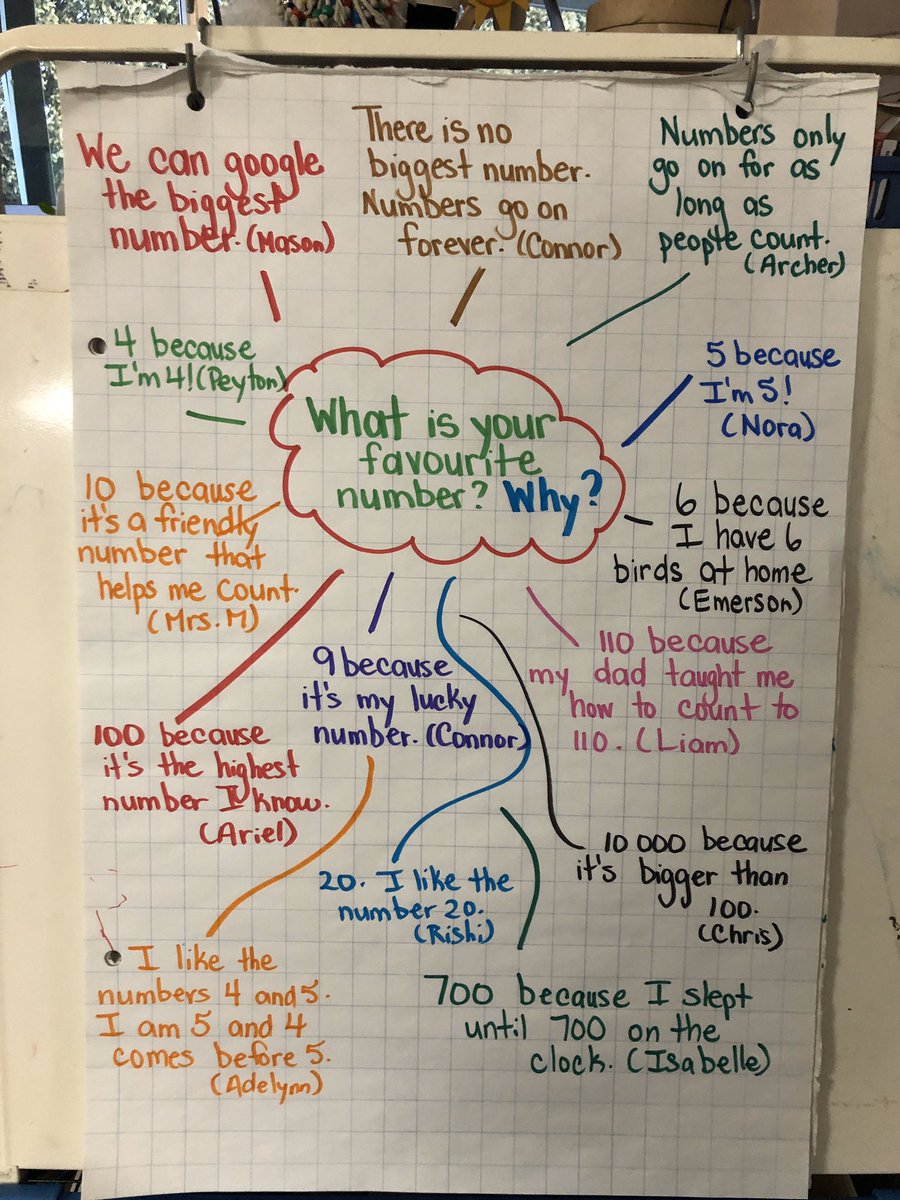 We can google
the biggest
number. (Mason)
There is no
biggest number.
Numbers go on
forever. (Connor)
Numbers only
go on for as
long as
people count.
(Archer)
4 because
I'm 4! (Peyton)
What is your
favourite
number? Why?
5 because
I'm 5!
(Nora)
10 because
it's a friendly
number that
helps me count.
(Mrs. M)
6 because
I have 6
birds at home
(Emerson)
9 because
it's my lucky
number. (Connor)
110 because
my dad taught me
how to count to
110. (Liam)
100 because
it's the highest
number I know.
(Ariel)
20. I like the
number 20.
(Rishi)
10 000 because
it's bigger than
100.
(Chris)
I like the
numbers 4 and 5.
I am 5 and 4
comes before 5.
(Adelynn)
700 because I slept
until 700 on the
clock. (Isabelle)